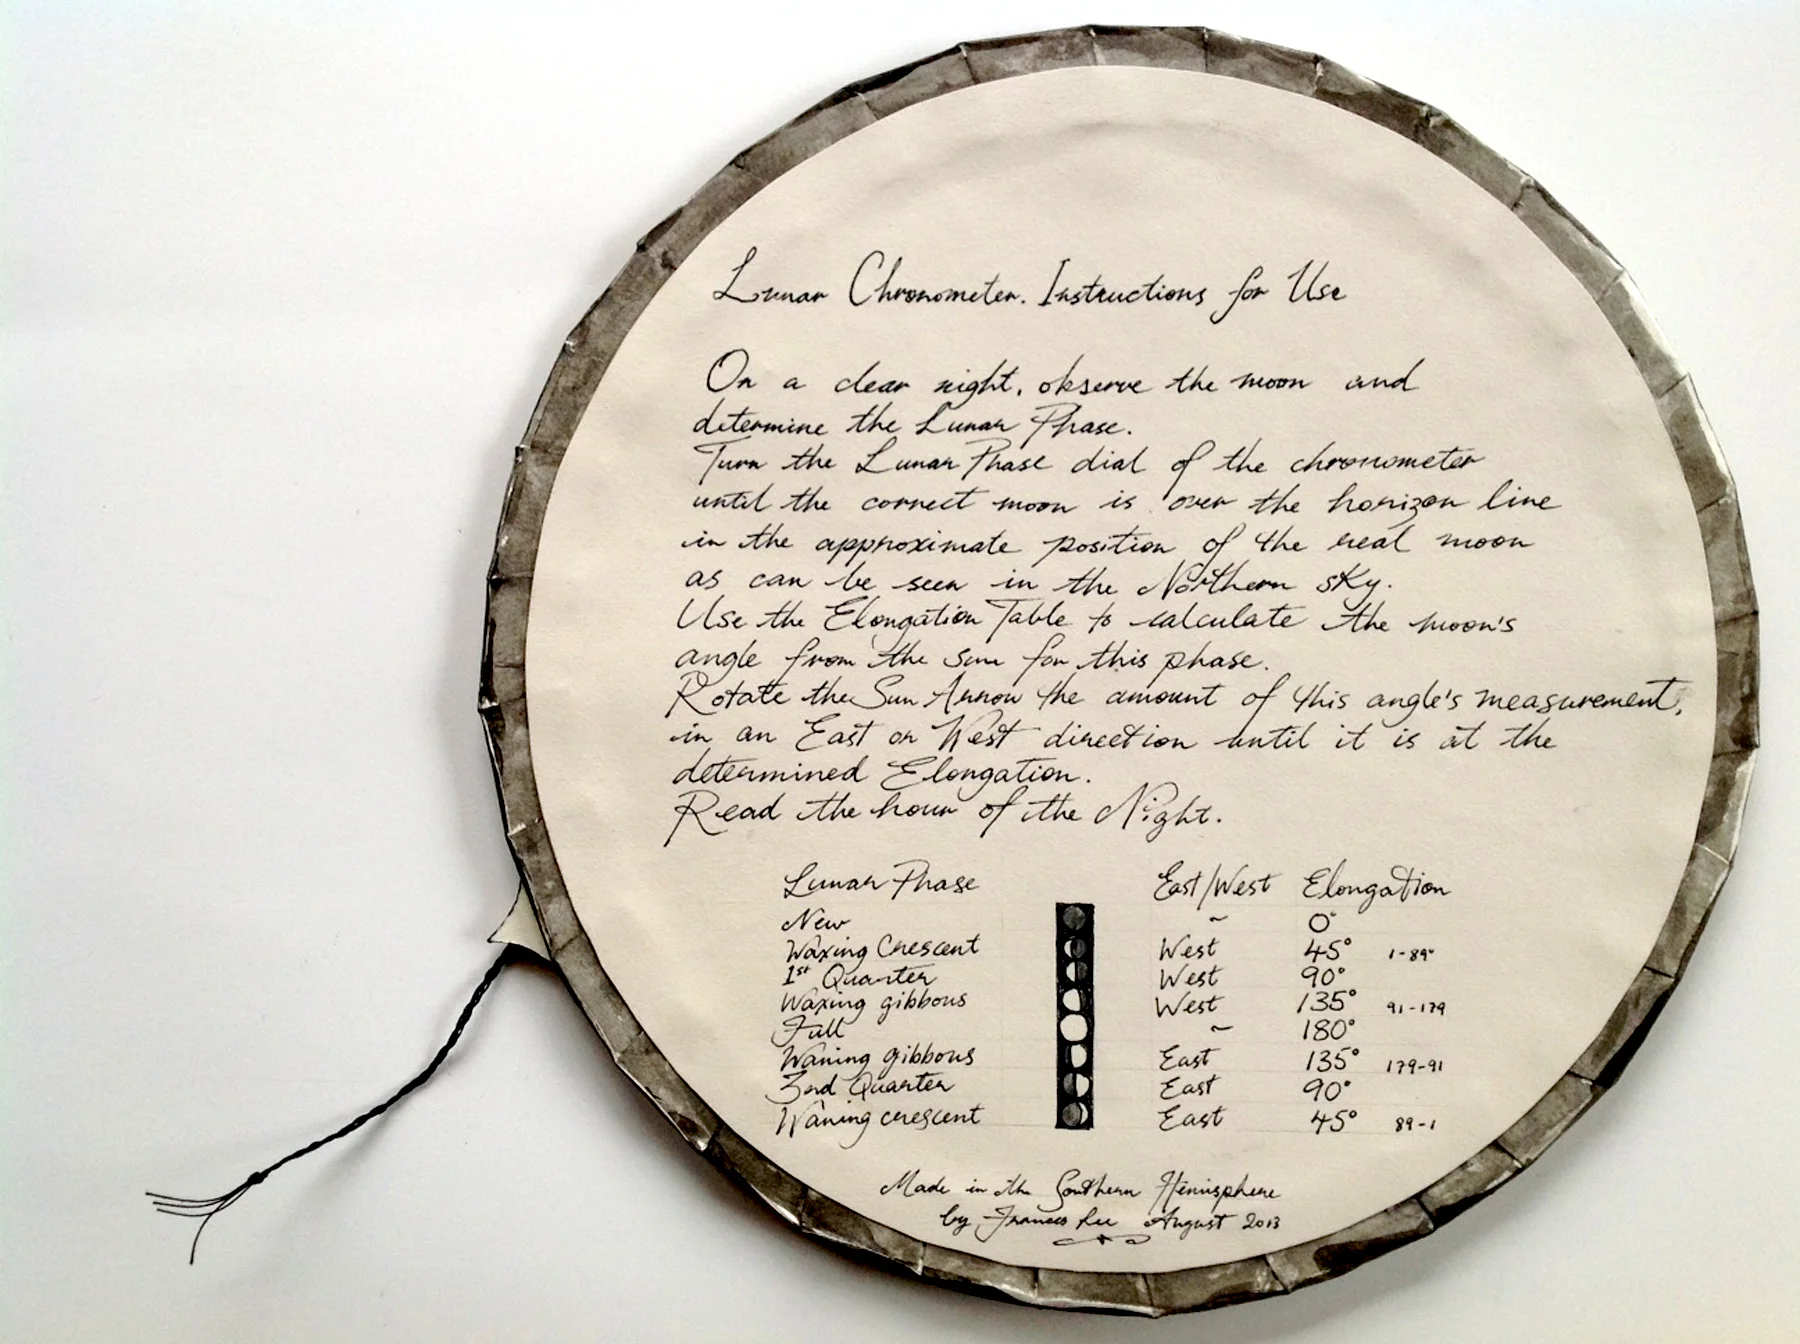 Lunar Chronometer. Instructions for Use
On a clear night, observe the moon and
determine the Lunar Phase.
Turn the Lunar Phase dial of the chronometer
until the correct moon is over the horizon line
in the approximate position of the real moon
as can be seen in the Northern sky.
Use the Elongation Table to calculate the moon's
angle from the sun for this phase.
Rotate the Sun Arrow the amount of this angle's measurement,
in an East or West direction until it is at the
determined Elongation.
Read the hour of the Night.
Lunar Phase East/West Elongation
New ~ 0°
Waxing Crescent West 45° 1-89°
1st Quarter West 90°
Waxing gibbous West 135° 91-179
Full ~ 180°
Waning gibbous East 135° 179-91
3rd Quarter East 90°
Waning crescent East 45° 89-1
Made in the Southern Hemisphere
by Frances August 2013